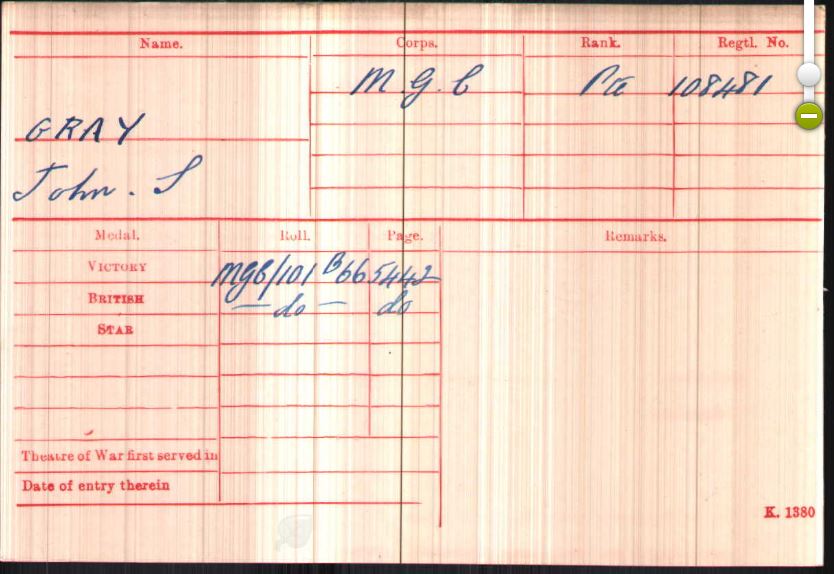 Name. Corps. Rank. Regtl. No.
M.G.C Pte 108481
GRAY
John. S
Medal. Roll. Page. Remarks.
VICTORY MGC/101 B66 5442
BRITISH — do — do
STAR
Theatre of War first served in
Date of entry therein
K. 1380